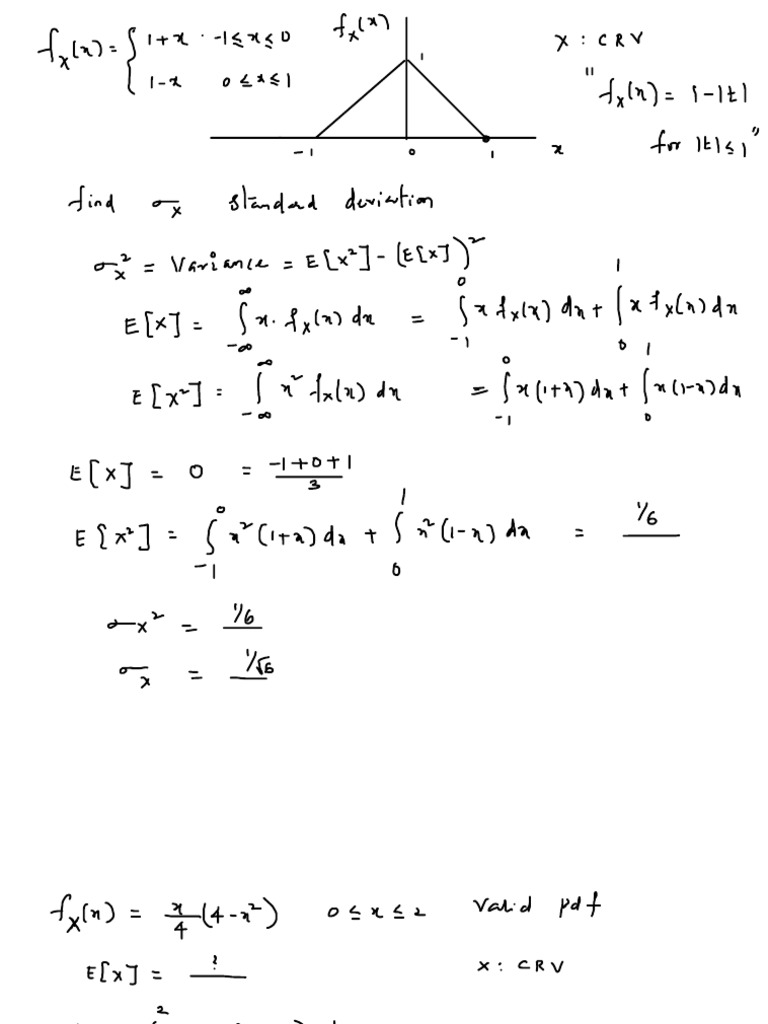 f_X(x) = { 1+x · -1≤x≤0
1-x 0≤x≤1
f_X(x)
1
-1 0 1 x
X : CRV
"f_X(x) = 1-|t|
for |t|≤1"
find σ_X standard deviation
σ_X² = Variance = E[X²] - (E[X])²
E[X] = ∫_{-∞}^{∞} x. f_X(x) dx = ∫_{-1}^{0} x f_X(x) dx + ∫_{0}^{1} x f_X(x) dx
E[X²] = ∫_{-∞}^{∞} x² f_X(x) dx = ∫_{-1}^{0} x(1+x) dx + ∫_{0}^{1} x(1-x) dx
E[X] = 0 = (-1+0+1)/3
E[X²] = ∫_{-1}^{0} x²(1+x) dx + ∫_{0}^{1} x²(1-x) dx = 1/6
σ_X² = 1/6
σ_X = 1/√6
f_X(x) = x/4 (4-x²) 0≤x≤2 Valid pdf
E[X] = ? X : CRV